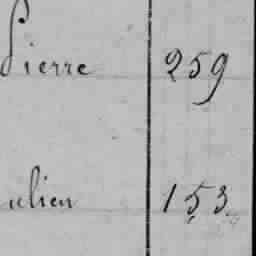 Pierre 259
ulien 153